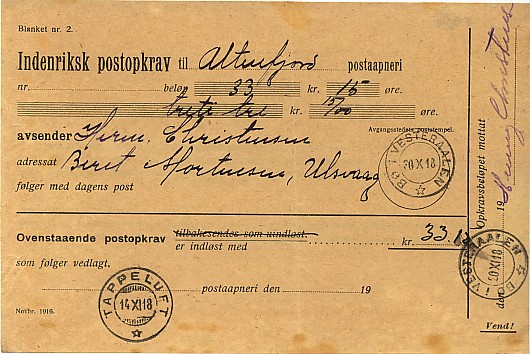 Blanket nr. 2.
Indenriksk postopkrav til Altenfjord postaapneri
nr. beløp 33 kr. 15 øre.
treti tre kr. 15/100 øre.
Avgangsstedets poststempel.
avsender Herm. Christensen
adressat Beret Mortensen, Ulsvaag
følger med dagens post
BØ I VESTERAALEN
20 X 18
Ovenstaaende postopkrav tilbakesendes som uindløst.
er indløst med kr. 33.15
som følger vedlagt.
postaapneri den 19
TAPPELUFT
14 XI 18
Novbr. 1916.
Opkravsbeløpet mottat
den 19
Christensen
BØ I VESTERAALEN
20 XI 18
Vend!